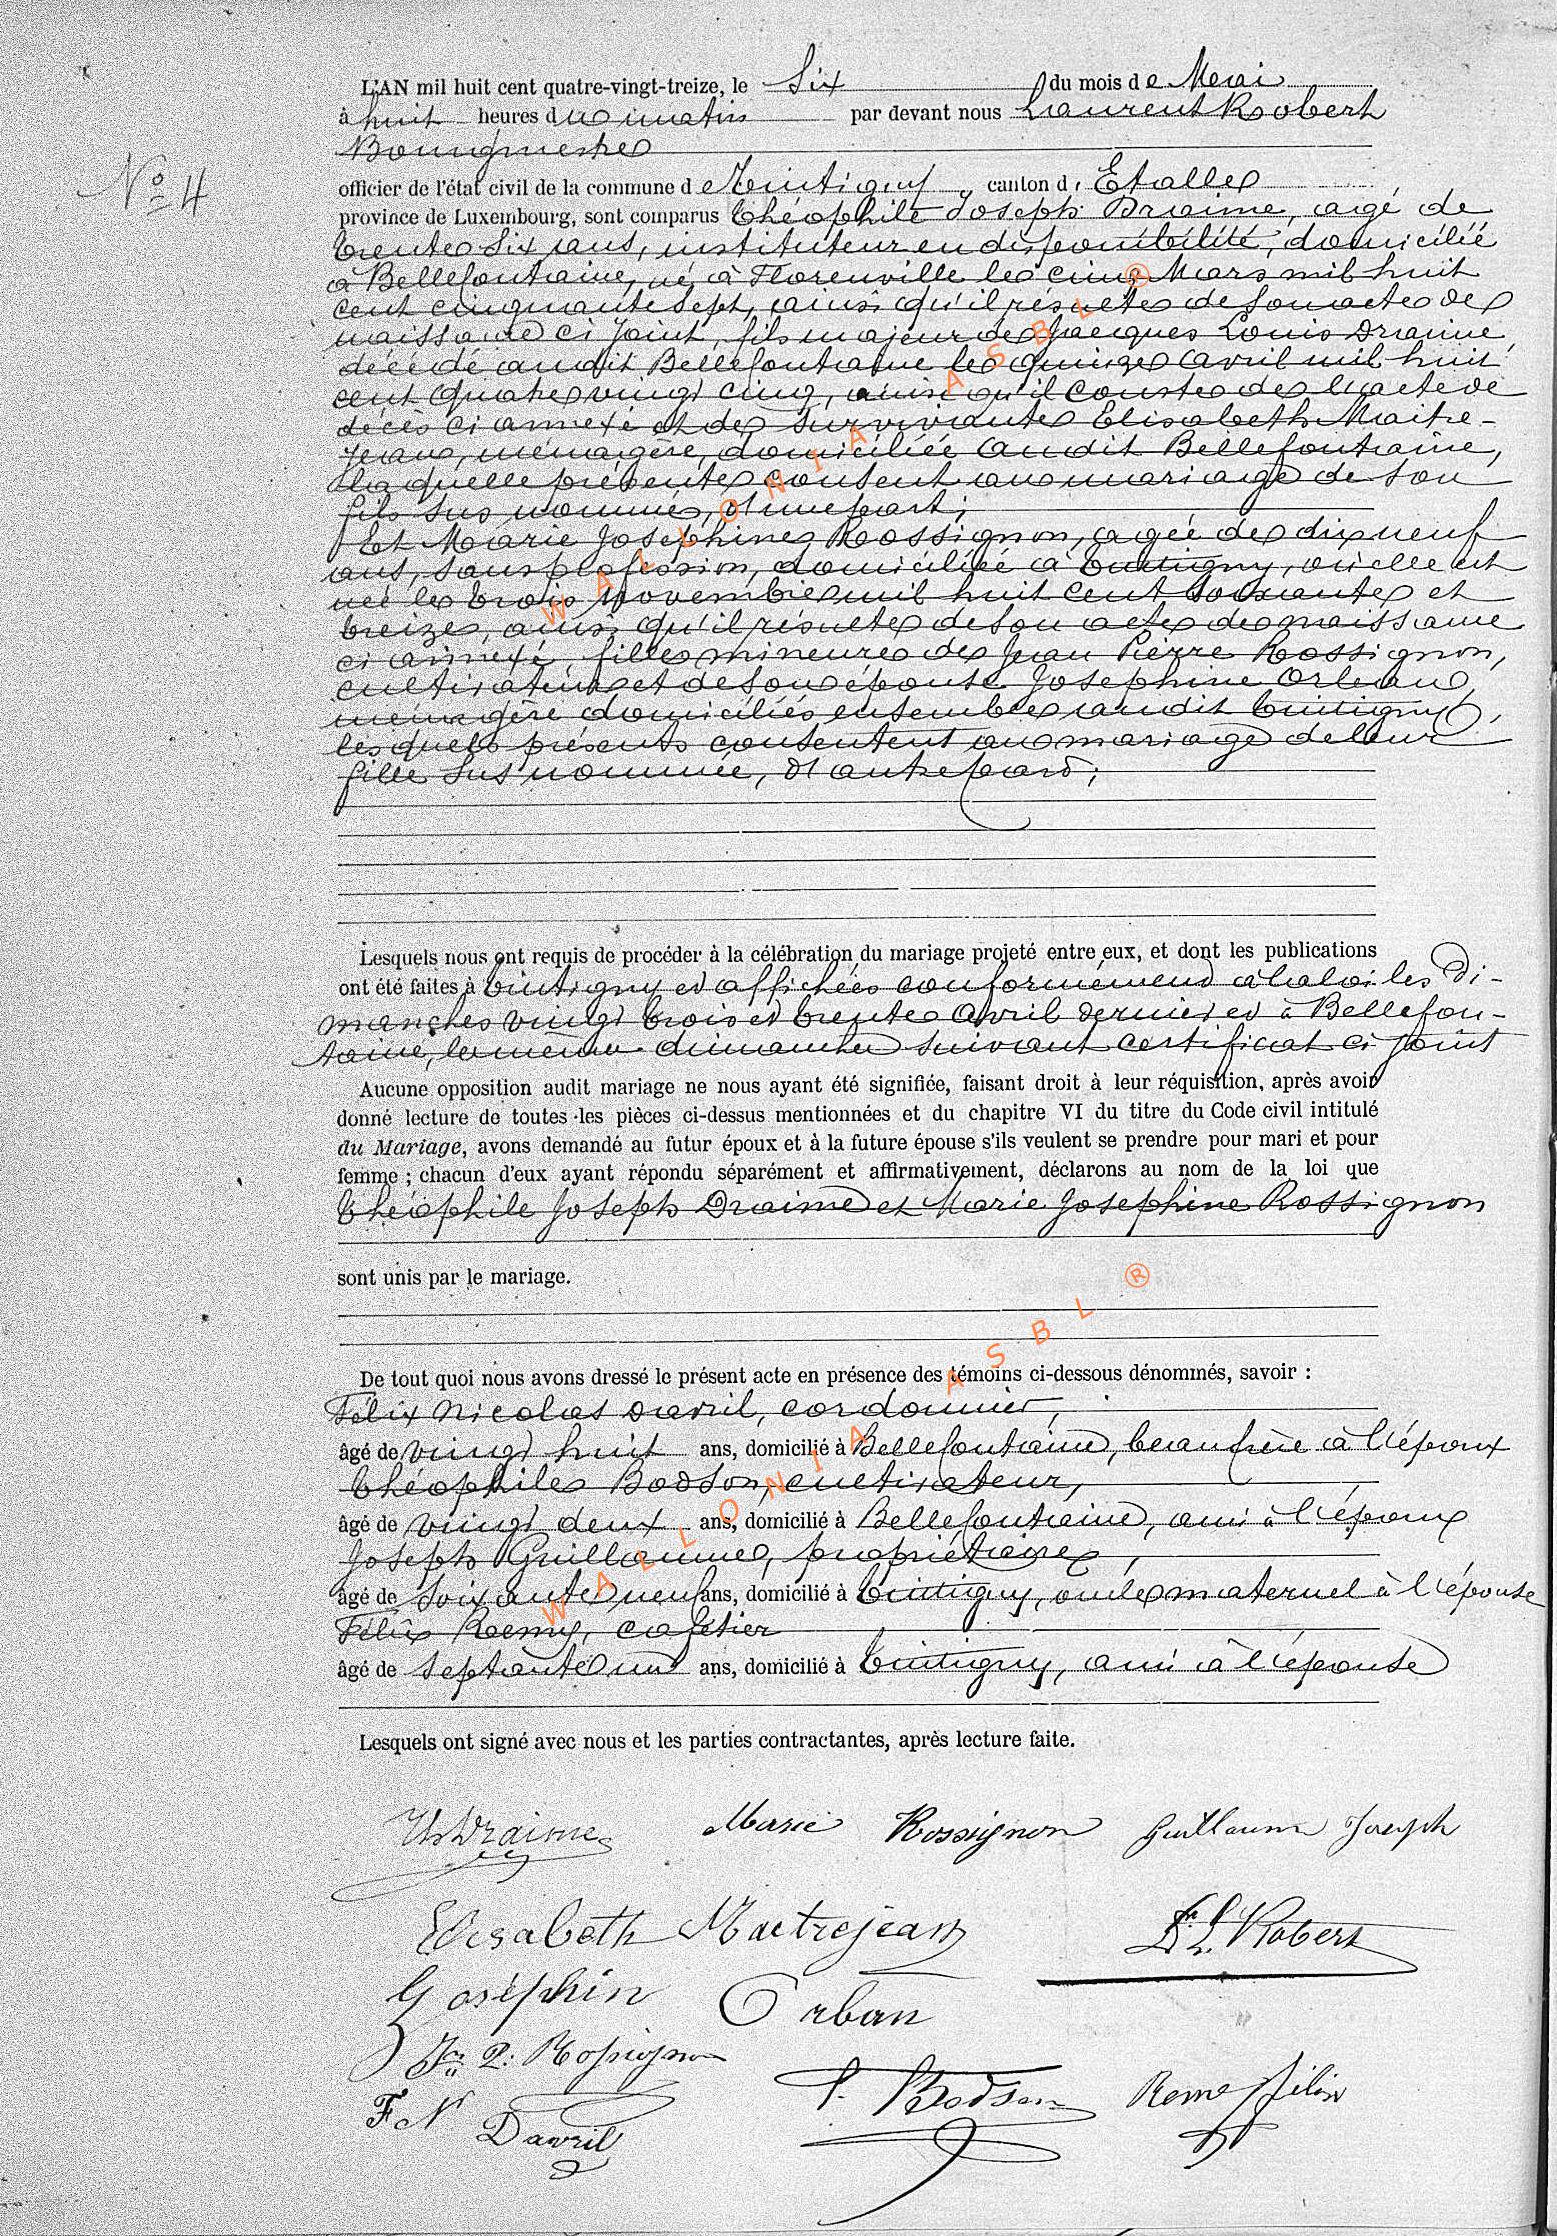 L'AN mil huit cent quatre-vingt-treize, le Six du mois de Mai
à huit heures du matin par devant nous Laurent Robert
Bourgmestre
N° 4
officier de l'état civil de la commune de Tintigny, canton d'Etalle
province de Luxembourg, sont comparus Théophile Joseph Draime, agé de
trente six ans, instituteur en disponibilité, domicilié
à Bellefontaine, né à Florenville le cinq Mars mil huit
cent cinquante sept, ainsi qu'il résulte de son acte de
naissance ci joint, fils majeur de Jacques Louis Draime,
décédé audit Bellefontaine le quinze avril mil huit
cent quatre vingt cinq, ainsi qu'il conste de l'acte de
décès ci annexé et de survivante Elisabeth Maitre-
jean, ménagère, domiciliée audit Bellefontaine,
laquelle présente consent au mariage de son
fils sus nommé, d'une part;
Et Marie Joséphine Rossignon, agée de dix neuf
ans, sans profession, domiciliée à Tintigny, où elle est
née le trois Novembre mil huit cent soixante et
treize, ainsi qu'il résulte de son acte de naissance
ci annexé, fille mineure de Jean Pierre Rossignon,
cultivateur et de son épouse Josephine Orban,
ménagère domiciliés ensemble audit Tintigny,
lesquels présents consentent au mariage de leur
fille sus nommée, d'autre part;
Lesquels nous ont requis de procéder à la célébration du mariage projeté entre eux, et dont les publications
ont été faites à Tintigny et affichées conformément à la loi les di-
manches vingt trois et trente Avril dernier et à Bellefon-
taine, les même dimanches suivant certificat ci joint
Aucune opposition audit mariage ne nous ayant été signifiée, faisant droit à leur réquisition, après avoir
donné lecture de toutes les pièces ci-dessus mentionnées et du chapitre VI du titre du Code civil intitulé
du Mariage, avons demandé au futur époux et à la future épouse s'ils veulent se prendre pour mari et pour
femme ; chacun d'eux ayant répondu séparément et affirmativement, déclarons au nom de la loi que
Théophile Joseph Draime et Marie Josephine Rossignon
sont unis par le mariage.
De tout quoi nous avons dressé le présent acte en présence des témoins ci-dessous dénommés, savoir :
Félix Nicolas Davril, cordonnier,
âgé de vingt huit ans, domicilié à Bellefontaine, beau frère à l'époux
Théophile Bodson, cultivateur,
âgé de vingt deux ans, domicilié à Bellefontaine, ami à l'époux
Joseph Guillaume, propriétaire,
âgé de soixante neuf ans, domicilié à Tintigny, oncle maternel à l'épouse
Félix Remy, cafetier
âgé de septante un ans, domicilié à Tintigny, ami à l'épouse
Lesquels ont signé avec nous et les parties contractantes, après lecture faite.
Th Draime Marie Rossignon Guillaume Joseph
Elisabeth Maitrejean L. Robert
Joséphin Orban
Jn P. Rossignon
F N Davril T. Bodson Remy félix
WALLONIA ASBL ®
WALLONIA ASBL ®